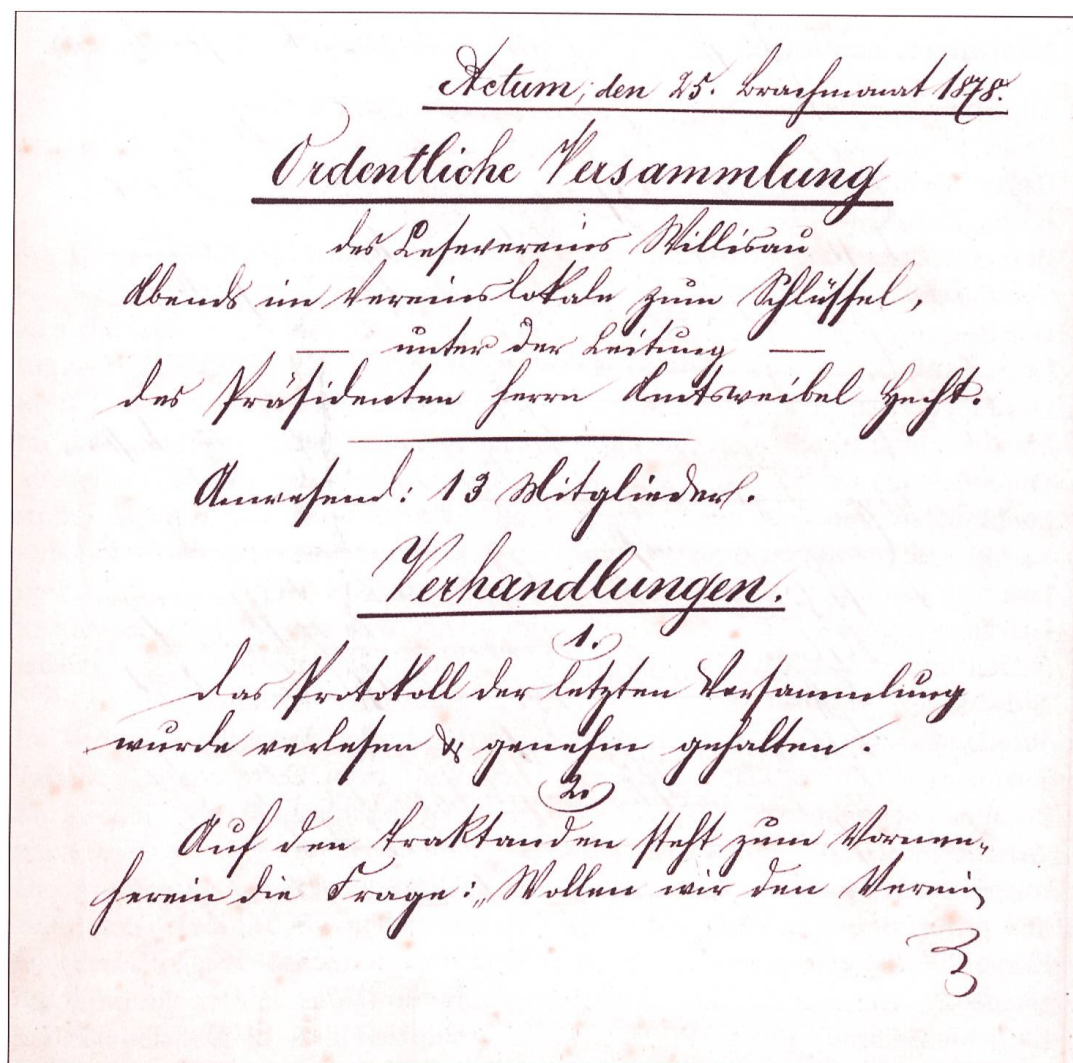 Actum, den 25. Brachmonat 1878.
Ordentliche Versammlung
des Lesevereins Willisau
Abends im Vereinslokale zum Schlüssel,
— unter der Leitung —
des Präsidenten Herrn Amtsweibel Hecht.
Anwesend: 13 Mitglieder.
Verhandlungen.
1.
Das Protokoll der letzten Versammlung
wurde verlesen & genehm gehalten.
2.
Auf den Traktanden steht zum Vornen-
herein die Frage: „Wollen wir den Verein